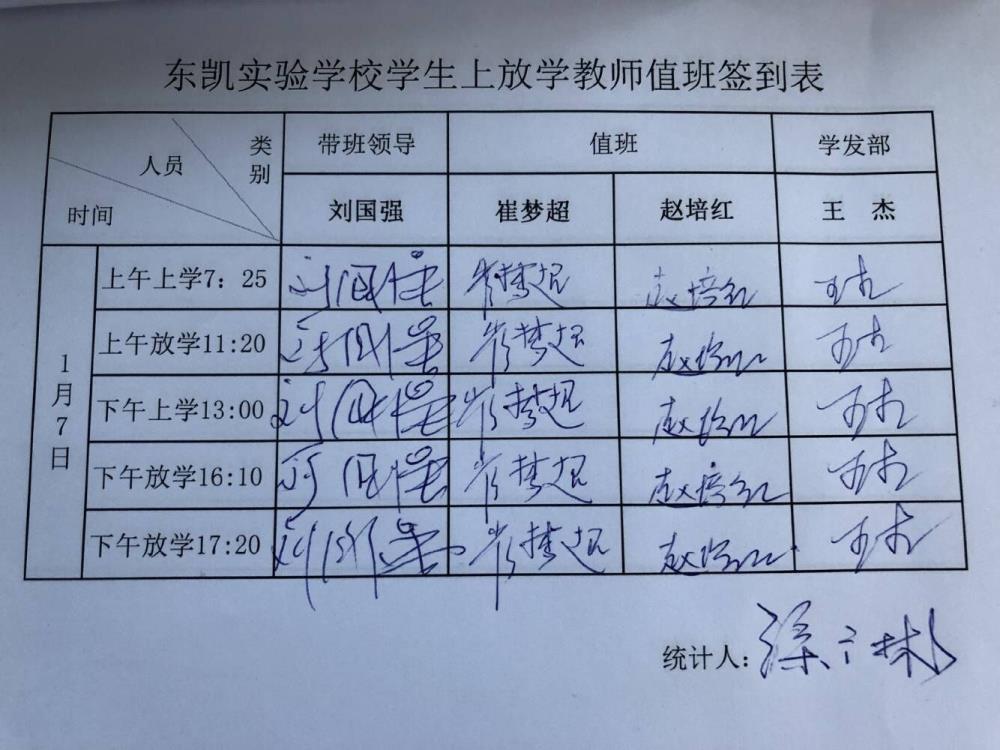 东凯实验学校学生上放学教师值班签到表
人员 类别 时间 带班领导 值班 学发部
刘国强 崔梦超 赵培红 王 杰
1月7日
上午上学7: 25 刘国强 崔梦超 赵培红 王杰
上午放学11:20 刘国强 崔梦超 赵培红 王杰
下午上学13:00 刘国强 崔梦超 赵培红 王杰
下午放学16:10 刘国强 崔梦超 赵培红 王杰
下午放学17:20 刘国强 崔梦超 赵培红 王杰
统计人: